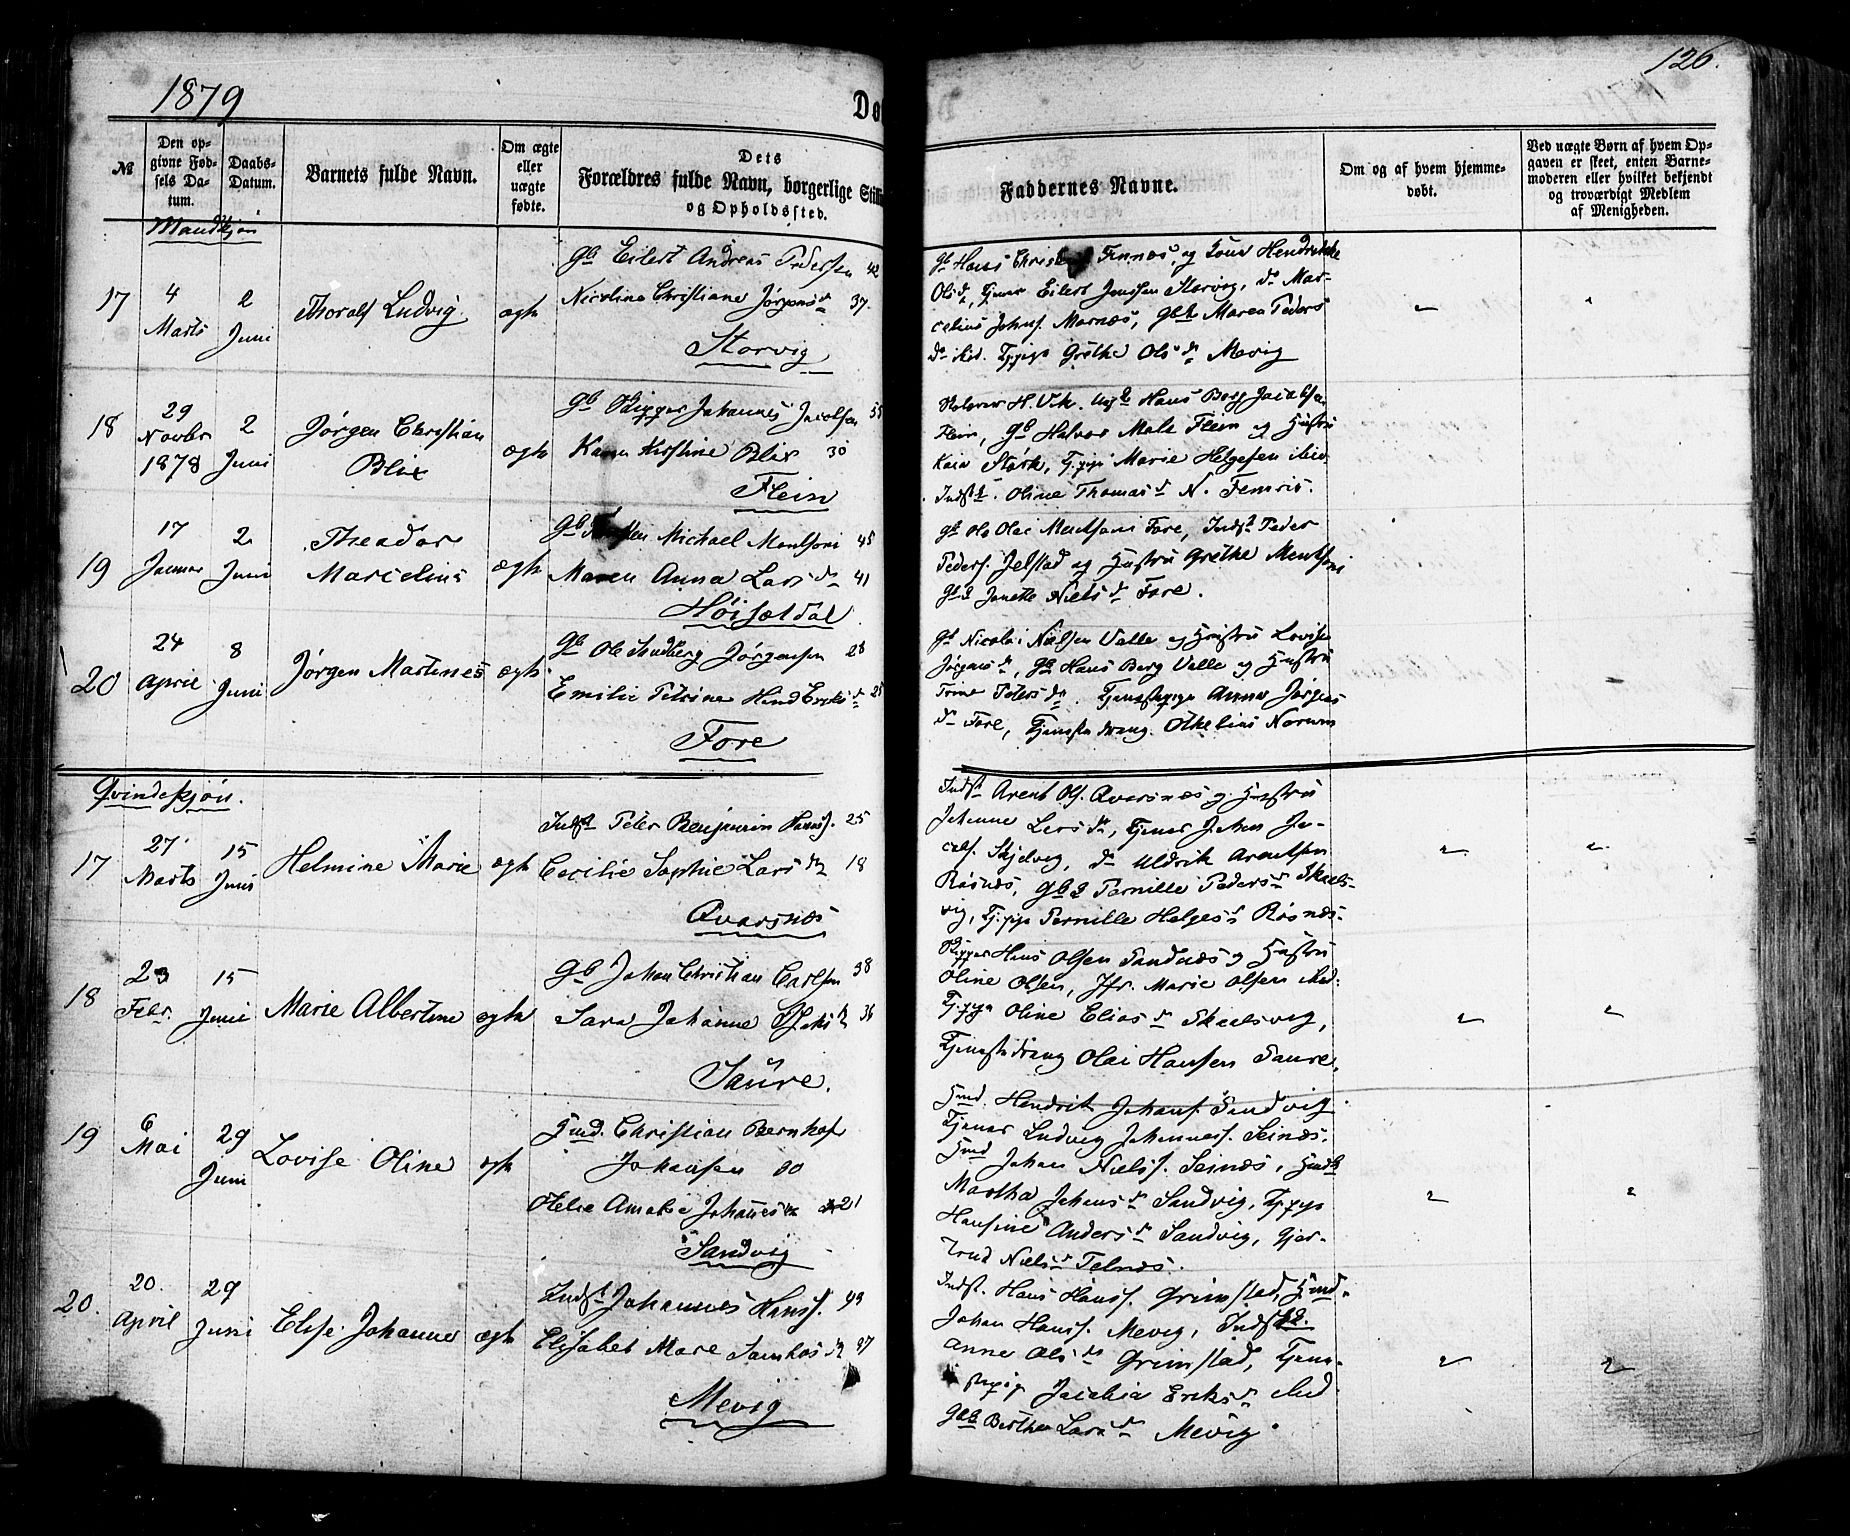 1879
126.
Dø
№
Den opgivne Fødsels Datum.
Daabs-Datum.
Barnets fulde Navn.
Om ægte eller uægte fødte.
Dets Forældres fulde Navn, borgerlige Stilli og Opholdssted.
Faddernes Navne.
Om og af hvem hjemmedøbt.
Ved uægte Børn af hvem Opgaven er skeet, enten Barnemoderen eller hvilket bekjendt og troværdigt Medlem af Menigheden.
Mandkjøn
17
4 Marts
2 Juni
Thoralf Ludvig.
ægte
Gb Eilert Andreas Pedersen 42
Nicoline Christiane Jørgensd 37.
Storvig
Gb Hans Finnes, og Kone Hendrikke
Olsd, Tjener Eilert Jenssen Storvig, do Mar-
celius Johns. Marnæs, Maren Peders
d ibid. Tjpige Grethe Olsd Mevig
18
29 Novbr 1878
2 Juni
Jørgen Christian Blix
ægte
Gb Skipper Johannes Jacobsen 35
Kirstine Blix 30
Flein
Hans Berg Jacobsen
Flein, Gb Halvor Flein og Hustru
Kaia Størk, Tj.pige Marie Helgesen ibid
Indst. Oline Thomasd N. Femris.
19
17 Januar
2 Juni
Theodor Marcelius
ægte
Gb Michael Mentsoni 45
Maren Anna Larsd 41
Høiseldal.
Gb Ole Olai Mentsoni Fore, Indst Peder
Peders. Jelstad og Hustru Grethe Mentsoni
Janette Nielsd Fore.
20
24 April
8 Juni
Jørgen Martines
ægte
Gb Ole Jørgensen 28
Emilie Petrine 25
Fore
Gb Nicolai Nielsen Valle og Hustru Lovise
Jørgensd, Gb Hans Berg Valle og Hustru
Trine Petersd. Tjenestepige Anne Jørgens
d Fore, Tjenestedreng. Othelius Norum
Qvindekjøn.
17
27 Marts
15 Juni
Helmine Marie
ægte
Indst Peter Benjamin Hanss. 25
Cecilie Sophie Larsd 18
Qvarsnæs
Indst Arent Ols. Qvarsnæs og Hustru
Johanne Larsd, Tjener Johan Ja-
cobs. Skjelvig, do Uldrik Arentsen
Røsnæs, Pernille Pedersd Skaals-
vig, Tj.pige Pernille Helgesd Røsnæs.
18
23 Febr.
15 Juni
Marie Albertine
ægte
Gb Johan Christian Carlsen 38
Sara Johanne 36
Saure.
Skipper Hans Olsen Sandnæs og Hustru
Oline Olsen, Jfr. Marie Olsen ibid.
Tj.pige Oline Eliasd Skaalsvig,
Tjenestedreng Olai Hansen Saure.
19
6 Mai
29 Juni
Lovise Oline
ægte
Hmd. Christian Bernhof
Johansen
Amalie Johannesd 21
Sandvig
Hmd. Hendrik Johans. Sandvig.
Tjener Ludvig Johanness. Seinæs.
Hmd Johan Nielss. Seinæs,
Martha Johansd Sandvig, Tj.pige
Hansine Andersd Sandvig, Gjer-
trud Nielsd Telnæs.
20.
20. April
29 Juni
Elise Johanne
ægte
Indst Johannes Hanss. 49
Elisabet 37
Mevig
Indst. Hans Hanss. Grimstad, Hmd.
Johan Hanss. Mevig,
Anne Olsd Grimstad, Tjene-
stepige Jacobia Eriksd ibid.
Berthe Larsd Mevig.